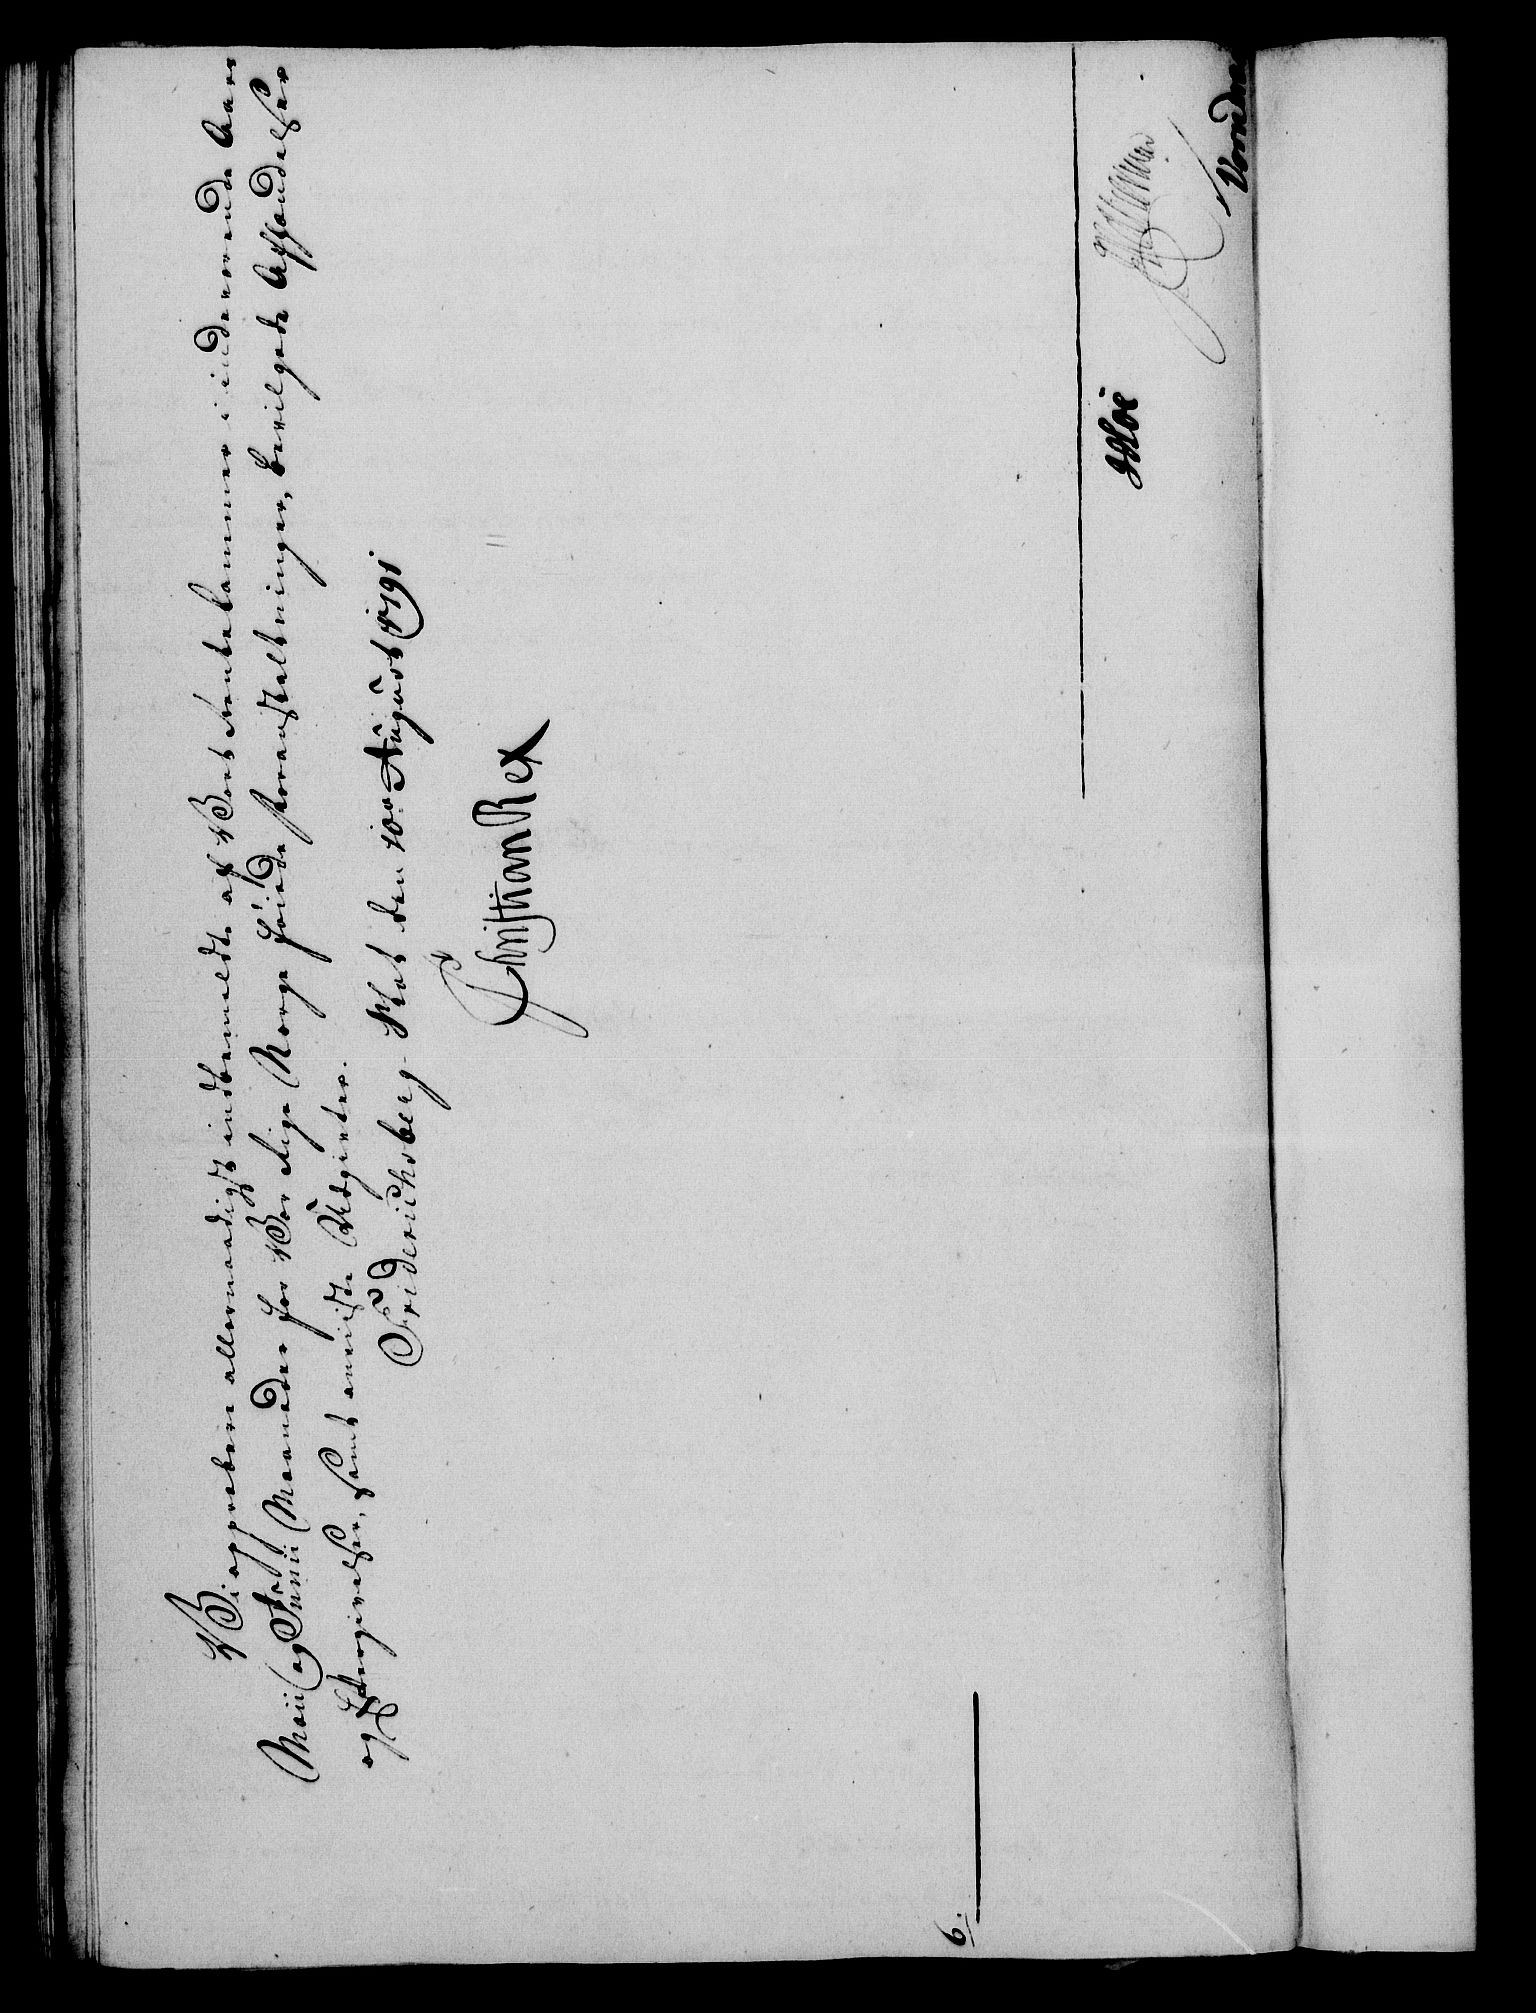 Vi approbere allernaadigst indbemeldte af Vort Rentekammer i indeværende Aars
Maii og Junii Maaneder for Vor Rige Norge föiede Foranstaltninger, bevilgede Afstaaelser
og Eftergivelser, samt anviiste Udgivter.
Friderichsberg Slot den 10de August 1791
Christian Rex
6.